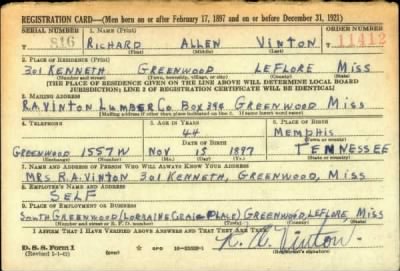 REGISTRATION CARD—(Men born on or after February 17, 1897 and on or before December 31, 1921)
SERIAL NUMBER 1. NAME (Print) ORDER NUMBER
S 16 RICHARD ALLEN VINTON 11412
(First) (Middle) (Last)
2. PLACE OF RESIDENCE (Print)
301 KENNETH GREENWOOD LEFLORE MISS
(Number and street) (Town, township, village, or city) (County) (State)
[THE PLACE OF RESIDENCE GIVEN ON THE LINE ABOVE WILL DETERMINE LOCAL BOARD
JURISDICTION; LINE 2 OF REGISTRATION CERTIFICATE WILL BE IDENTICAL]
3. MAILING ADDRESS
R.A. VINTON LUMBER CO. BOX 394 GREENWOOD MISS
[Mailing address if other than place indicated on line 2. If same insert word same]
4. TELEPHONE 5. AGE IN YEARS 6. PLACE OF BIRTH
44 MEMPHIS
DATE OF BIRTH (Town or county)
GREENWOOD 1557W NOV 15 1897 TENNESSEE
(Exchange) (Number) (Mo.) (Day) (Yr.) (State or country)
7. NAME AND ADDRESS OF PERSON WHO WILL ALWAYS KNOW YOUR ADDRESS
MRS R.A. VINTON 301 KENNETH, GREENWOOD, MISS
8. EMPLOYER'S NAME AND ADDRESS
SELF
9. PLACE OF EMPLOYMENT OR BUSINESS
SOUTH GREENWOOD (LORRAINE CRAIG PLACE) GREENWOOD, LEFLORE, MISS
(Number and street or R. F. D. number) (Town) (County) (State)
I AFFIRM THAT I HAVE VERIFIED ABOVE ANSWERS AND THAT THEY ARE TRUE.
D. S. S. Form 1 R. A. Vinton
(Revised 1-1-42) GPO (Registrant's signature)